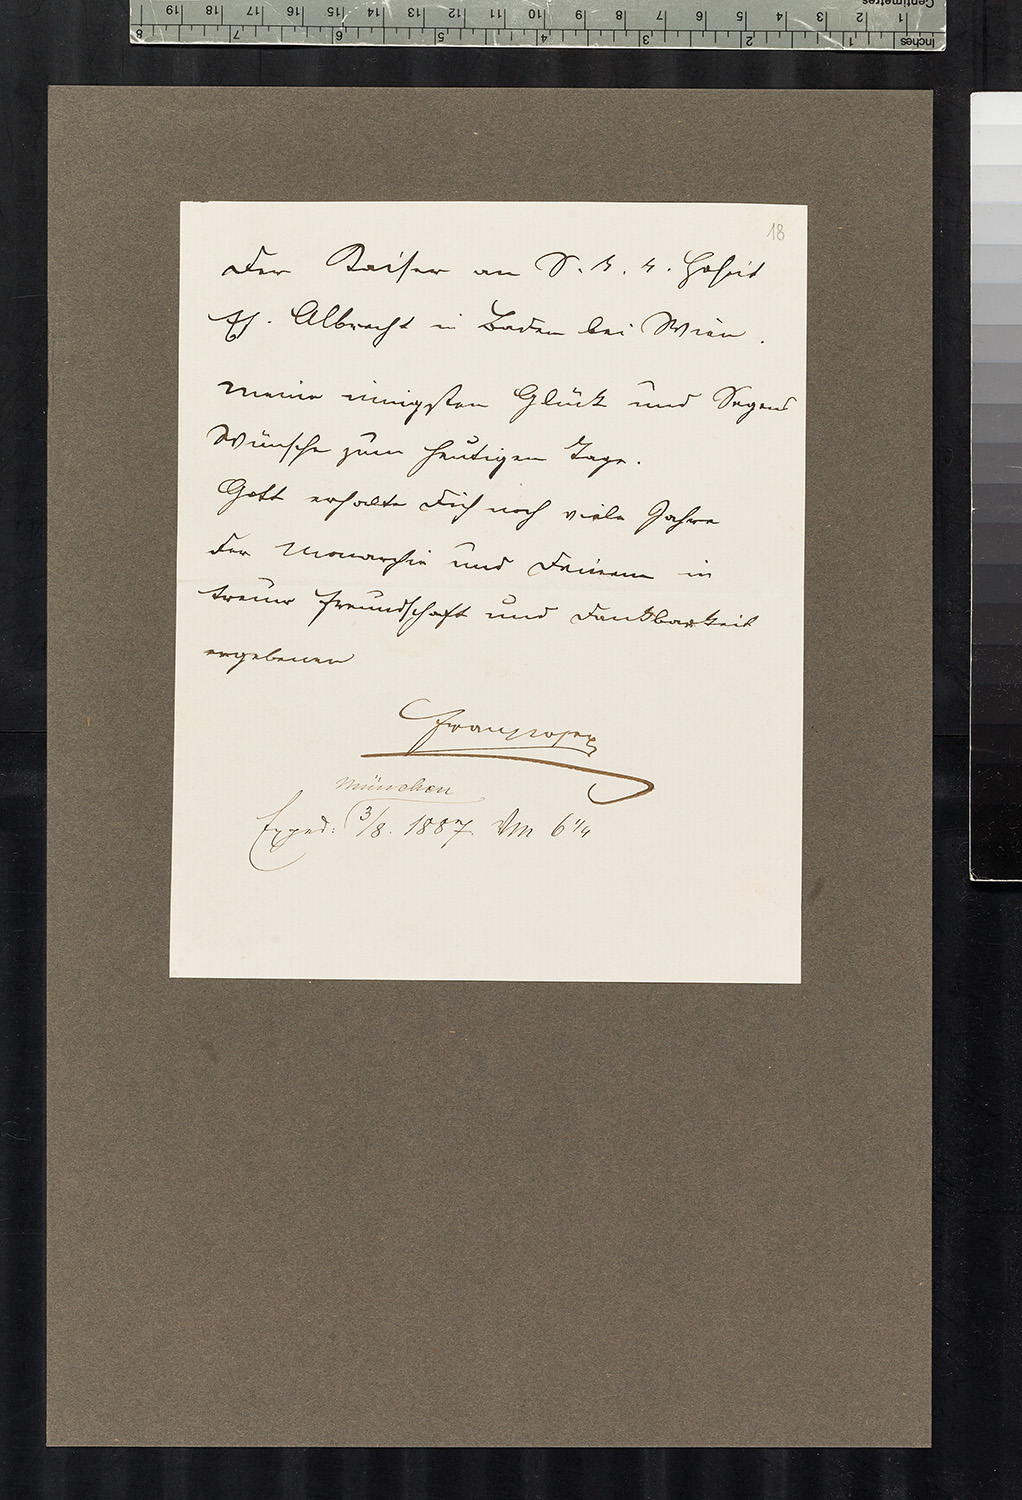 Centimetres 1 2 3 4 5 6 7 8 9 10 11 12 13 14 15 16 17 18 19
Inches 1 2 3 4 5 6 7 8
18
Der Kaiser an S. k. k. Hoheit
Eh. Albrecht in Baden bei Wien.
Meine innigsten Glück und Segens
Wünsche zum heutigen Tage.
Gott erhalte Dich noch viele Jahre
der Monarchie und Deinem in
treuer Freundschaft und Dankbarkeit
ergebenen
Franz Joseph
München
Exped: 3/8. 1887. Vm 6 1/4